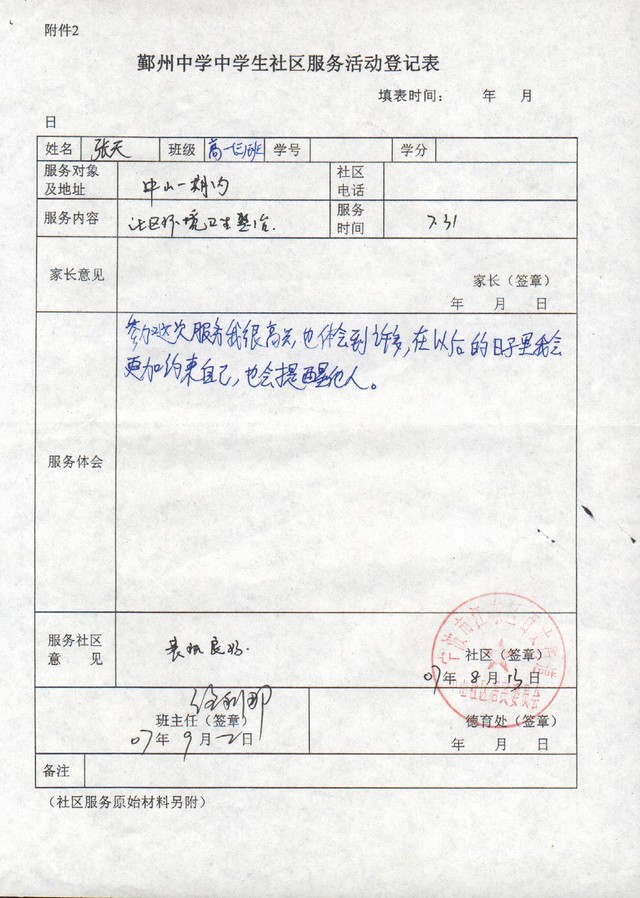 附件2
鄞州中学中学生社区服务活动登记表
填表时间： 年 月
日
姓名 张天 班级 高一(三)班 学号 学分
服务对象及地址 中山一期内 社区电话
服务内容 社区环境卫生整治. 服务时间 7.31
家长意见
家长（签章）
年 月 日
参加这次服务我很高兴,也体会到许多,在以后的日子里我会
更加约束自己,也会提醒他人。
服务体会
服务社区意 见 表现良好. 社区（签章）
07年 8月 13日
班主任（签章） 德育处（签章）
07年 9月 2日 年 月 日
备注
（社区服务原始材料另附）